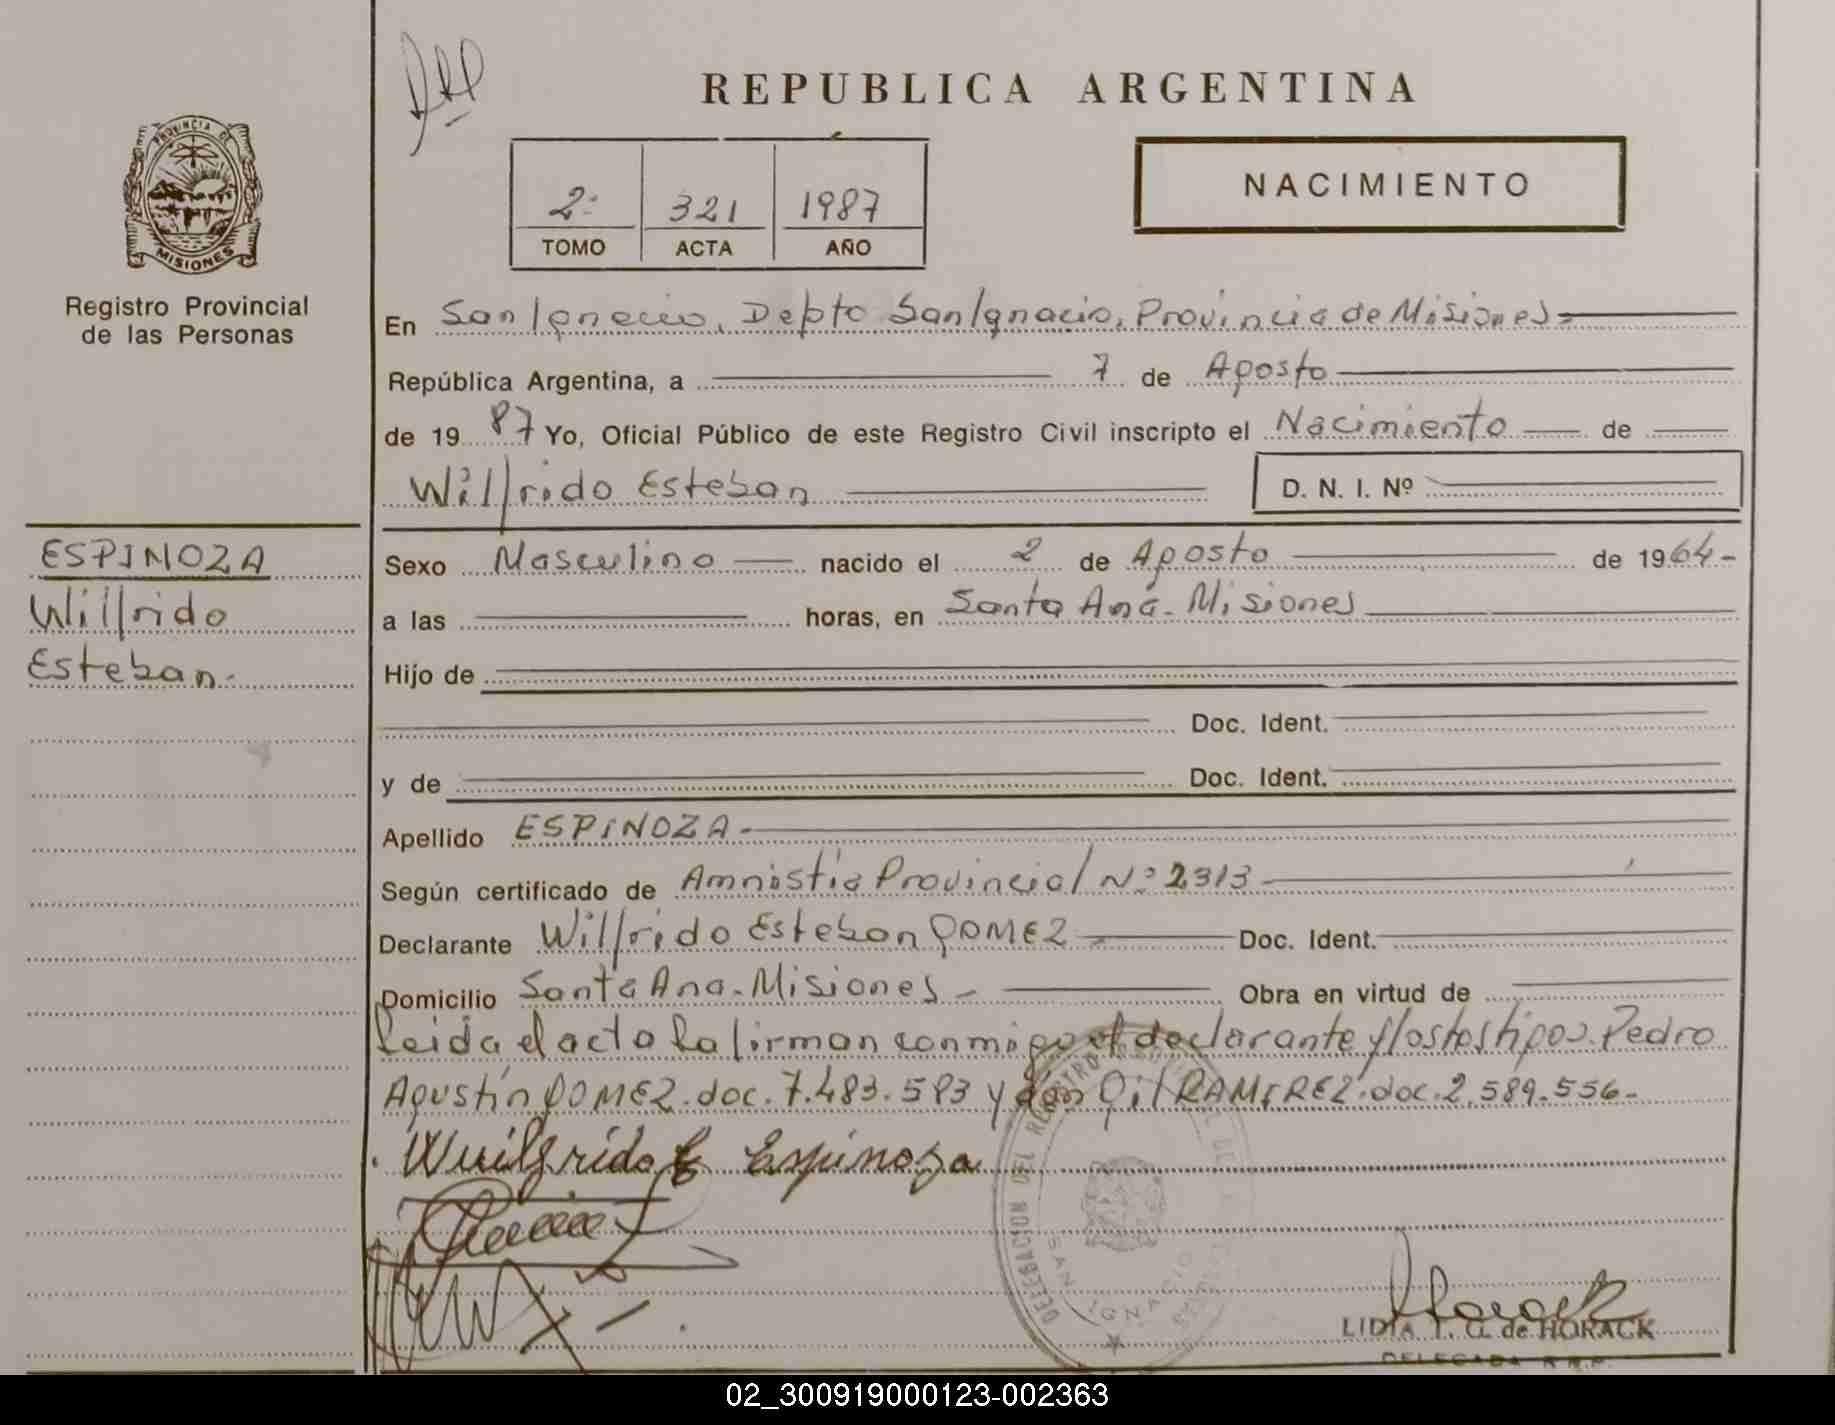 REPUBLICA ARGENTINA
NACIMIENTO
2º 321 1987
TOMO ACTA AÑO
PROVINCIA DE
MISIONES
Registro Provincial
de las Personas
En San Ignacio, Depto San Ignacio, Provincia de Misiones
República Argentina, a 7 de Agosto
de 1987 Yo, Oficial Público de este Registro Civil inscripto el Nacimiento de
Wilfrido Esteban
D. N. I. Nº
ESPINOZA
Wilfrido
Esteban
Sexo Masculino nacido el 2 de Agosto de 1964-
a las horas, en Santa Ana - Misiones
Hijo de
Doc. Ident.
y de Doc. Ident.
Apellido ESPINOZA-
Según certificado de Amnistía Provincial Nº 2313
Declarante Wilfrido Esteban GOMEZ Doc. Ident.
Domicilio Santa Ana - Misiones - Obra en virtud de
Leida el acta la firman conmigo el declarante y los testigos. Pedro
Agustín GOMEZ. doc. 7.483.583 y don Gil RAMIREZ. doc. 2.589.556-
Wuilfrido E Espinoza
DELEGACION DEL REGISTRO
SAN IGNACIO
LIDIA T. G. de HORACK
DELEGADA R.R.P.
02_300919000123-002363